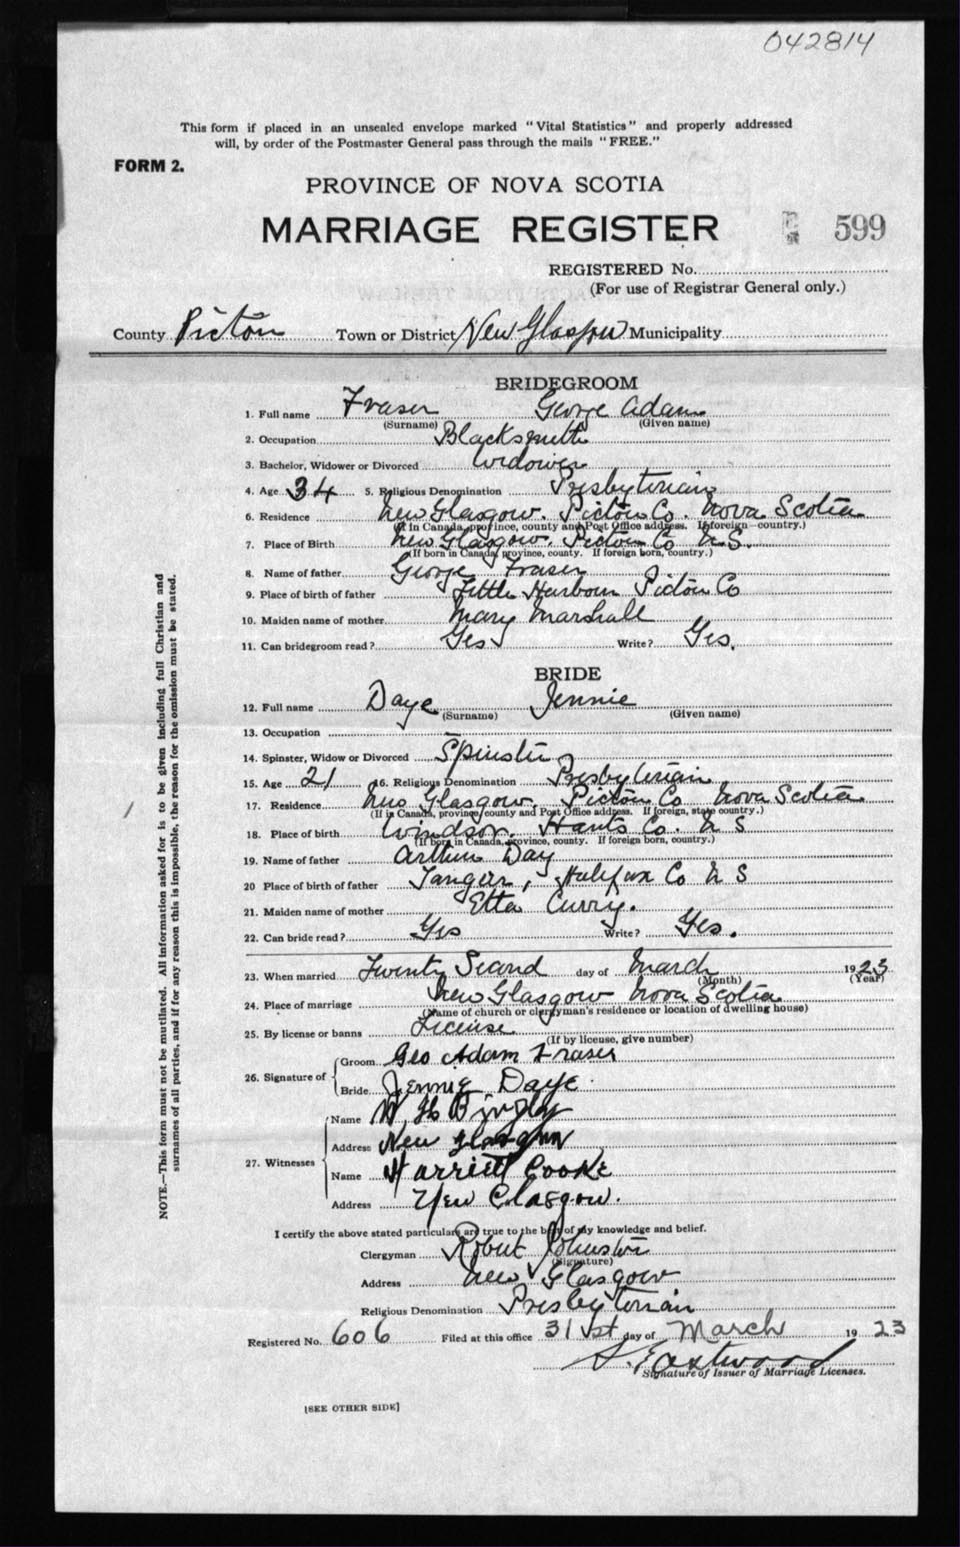 042814
This form if placed in an unsealed envelope marked "Vital Statistics" and properly addressed
will, by order of the Postmaster General pass through the mails "FREE."
FORM 2.
PROVINCE OF NOVA SCOTIA
MARRIAGE REGISTER 599
REGISTERED No.
(For use of Registrar General only.)
County Pictou Town or District New Glasgow Municipality
BRIDEGROOM
1. Full name Fraser George Adam
(Surname) (Given name)
2. Occupation Blacksmith
3. Bachelor, Widower or Divorced Widower
4. Age 34 5. Religious Denomination Presbyterian
6. Residence New Glasgow. Pictou Co. Nova Scotia
(If in Canada, province, county and Post Office address. If foreign—country.)
7. Place of Birth New Glasgow. Pictou Co N.S.
(If born in Canada, province, county. If foreign born, country.)
8. Name of father George Fraser
9. Place of birth of father Little Harbour Pictou Co
10. Maiden name of mother Mary Marshall
11. Can bridegroom read? Yes Write? Yes.
BRIDE
12. Full name Daye Jennie
(Surname) (Given name)
13. Occupation
14. Spinster, Widow or Divorced Spinster
15. Age 21 16. Religious Denomination Presbyterian
17. Residence New Glasgow. Pictou Co Nova Scotia
(If in Canada, province, county and Post Office address. If foreign, state country.)
18. Place of birth Windsor. Hants Co. N S
(If born in Canada, province, county. If foreign born, country.)
19. Name of father Arthur Day
20 Place of birth of father Tangier, Halifax Co N S
21. Maiden name of mother Etta Curry.
22. Can bride read? Yes Write? Yes.
23. When married Twenty Second day of March 1923
(Month) (Year)
24. Place of marriage New Glasgow Nova Scotia
(Name of church or clergyman's residence or location of dwelling house)
25. By license or banns License
(If by license, give number)
26. Signature of
Groom Geo Adam Fraser
Bride Jennie Daye.
27. Witnesses
Name W H Bingly
Address New Glasgow
Name Harriett Cooke
Address New Glasgow.
I certify the above stated particulars are true to the best of my knowledge and belief.
Clergyman Robert Johnston
(Signature)
Address New Glasgow
Religious Denomination Presbyterian
Registered No. 606 Filed at this office 31st day of March 1923
S. Eastwood
Signature of Issuer of Marriage Licenses.
[SEE OTHER SIDE]
NOTE.—This form must not be mutilated. All information asked for is to be given including full Christian and
surnames of all parties, and if for any reason this is impossible, the reason for the omission must be stated.